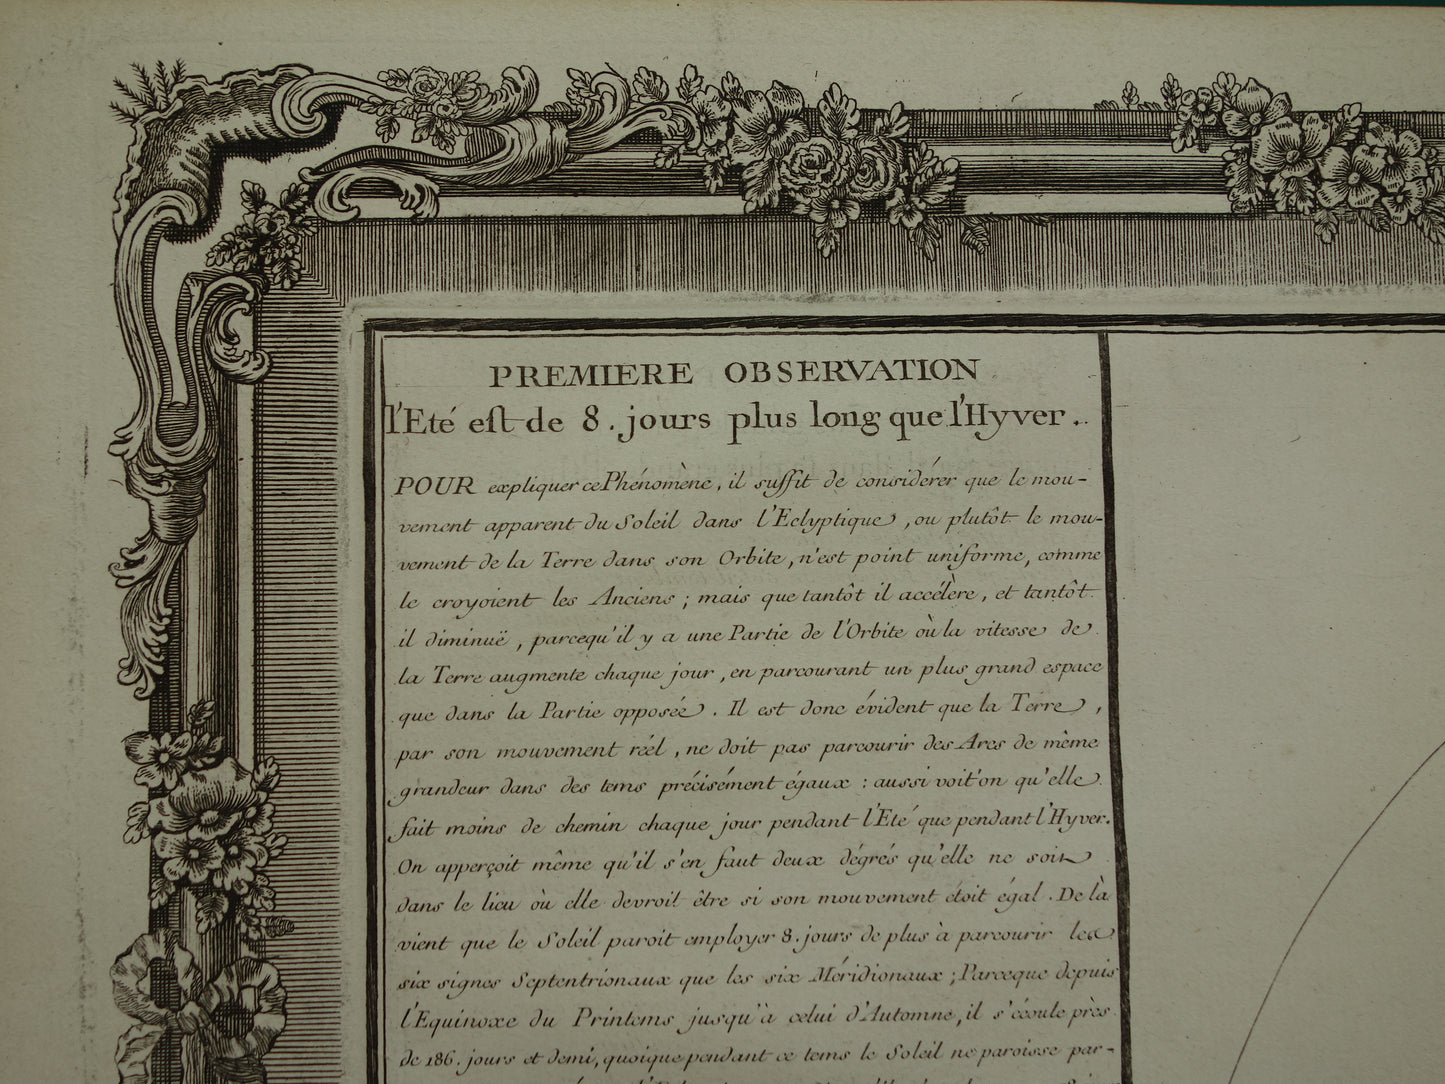 PREMIERE OBSERVATION
l'Eté est de 8. jours plus long que l'Hyver.
POUR expliquer ce Phénomène, il suffit de considérer que le mou-
vement apparent du Soleil dans l'Eclyptique, ou plutôt le mou-
vement de la Terre dans son Orbite, n'est point uniforme, comme
le croyoient les Anciens; mais que tantôt il accélère, et tantôt
il diminuë, parcequ'il y a une Partie de l'Orbite où la vitesse de
la Terre augmente chaque jour, en parcourant un plus grand espace
que dans la Partie opposée. Il est donc évident que la Terre,
par son mouvement réel, ne doit pas parcourir des Arcs de même
grandeur dans des tems précisément égaux: aussi voit'on qu'elle
fait moins de chemin chaque jour pendant l'Eté que pendant l'Hyver.
On apperçoit même qu'il s'en faut deux dégrés qu'elle ne soit
dans le lieu où elle devroit être si son mouvement étoit égal. De là
vient que le Soleil paroit employer 8. jours de plus à parcourir les
six signes Septentrionaux que les six Méridionaux; Parceque depuis
l'Equinoxe du Printems jusqu'à celui d'Automne, il s'écoule près
de 186. jours et demi, quoique pendant ce tems le Soleil ne paroisse par-